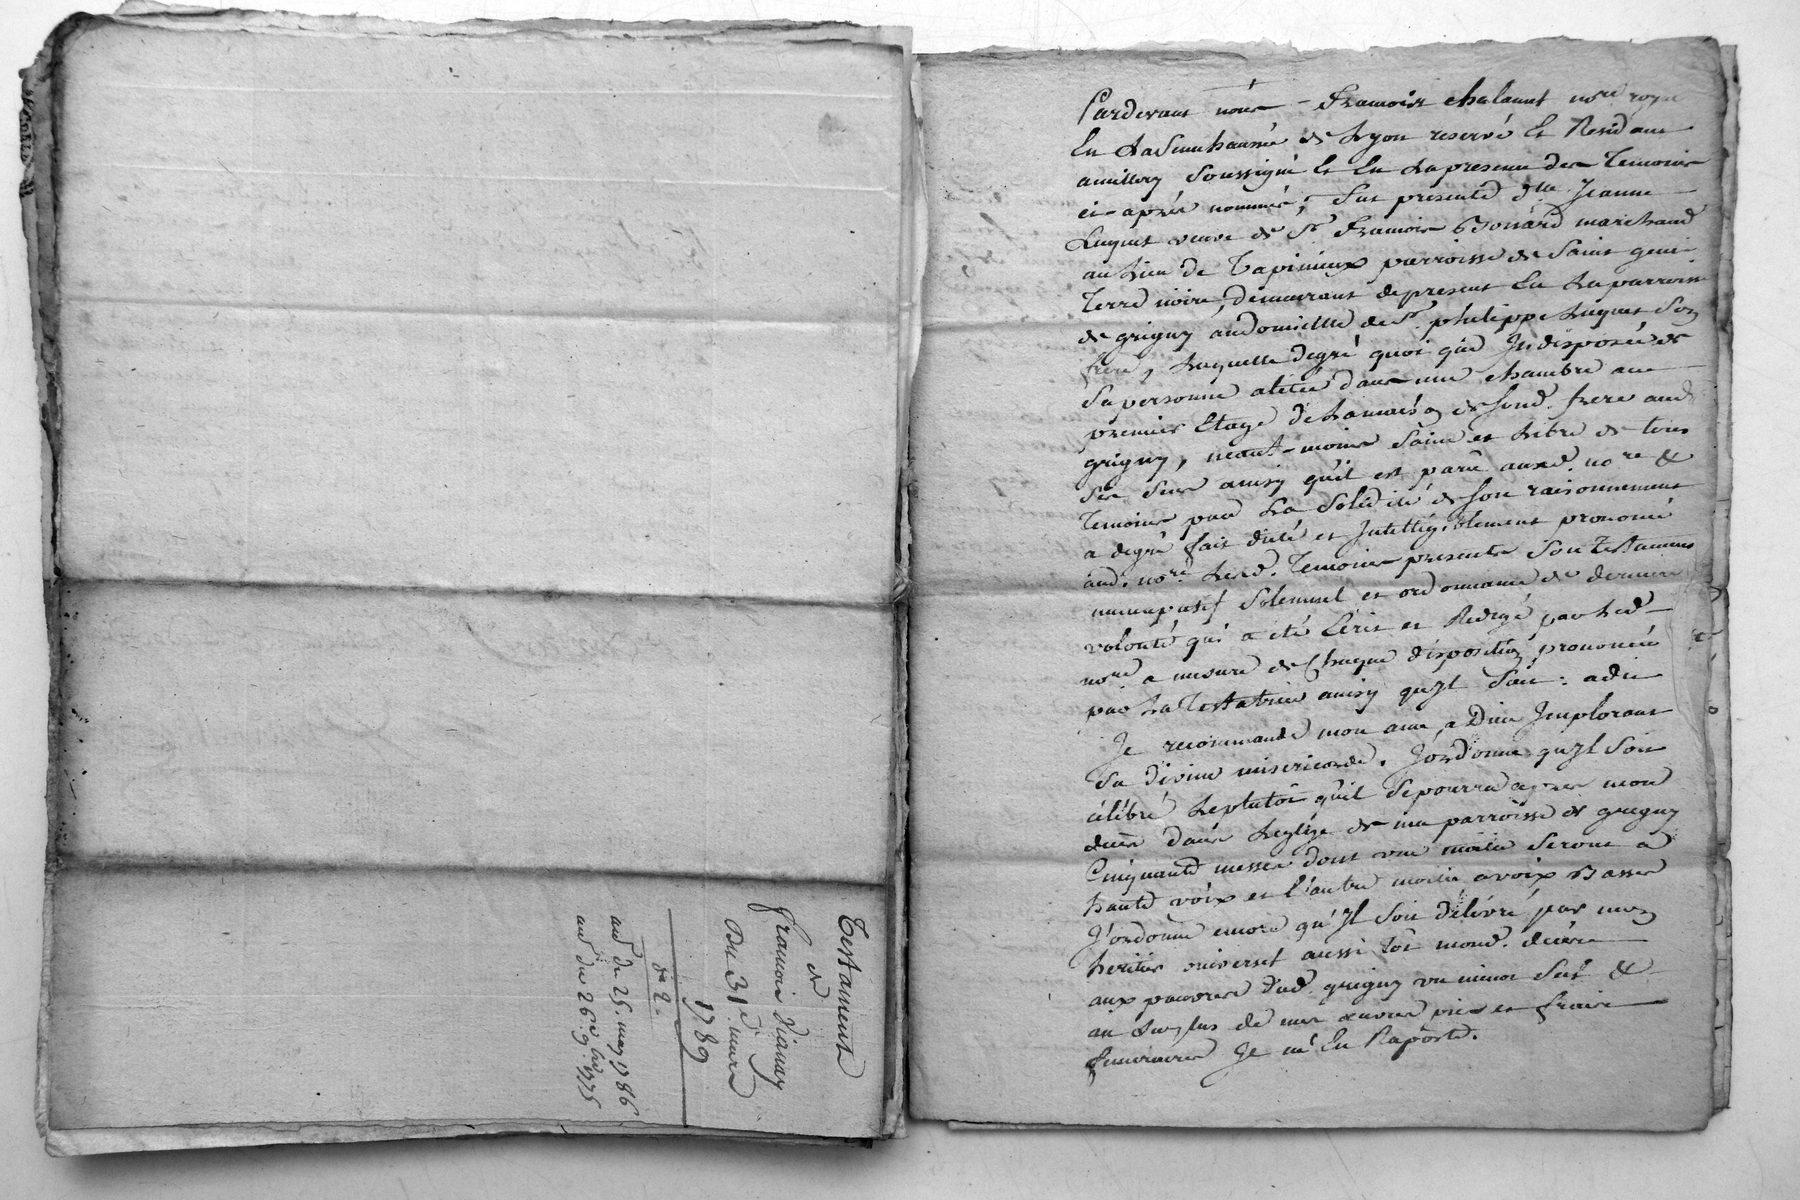 Testament
de
francois Vianay
Du 31e. mars
1789
No 2.
aud. de 25. may 1786
aud. du 26e. 9bre 1775
Pardevant nous - francois chalaunt nore royal
En La Senechaussée de Lyon reservé Et Residant
amillery Soussigné Et En La presence des Temoins
ci-après nommés, fut presente dlle. Jeanne
Luquet veuve de Sr francois Bonnard marchand
au Lieu de Tapinieux parroisse de Saint geni
Terre noire, demeurant de present En La parroisse
de grigny audomicille de Sr. philippe Luquet Son
frere, Laquelle degré quoi que Indisposée de
Sa personne alitée dans une chambre au
premier Etage de La maison de Sond. frere aud.
grigny, neant-moins Saine et Libre de tous
Ses Sens ainsy qu'il est parû auxd. nore &
Temoins par La Solidité de Son raisonnement
a degré fait dicté et Intelligiblement prononcé
aud. nore. Lesd. Temoins presents Son Testament
nuncupatif Solemnel et ordonnance de derniere
volonté qui a été Ecrit et Redigé par Led.
nore a mesure de chaque disposition prononcée
par La Testatrice ainsy qu'Il Suit: a dit
Je recommande mon ame a Dieu Implorant
Sa divine misericorde. Jordonne qu'Il Soit
célébré Leplutôt qu'il Sepourra apres mon
decès dans Leglize de ma parroisse de grigny
Cinquante messes dont une moitié Seront a
haute voix et l'autre moitié avoix Basse
J'ordonne encore qu'Il Soit délivré par mon
heritier universel aussi tôt mond. decès
aux pauvres dud. grigny un minot Sel &
au Surplus de mes œuvres pies et fraix
funeraires Je m'En Raporte.